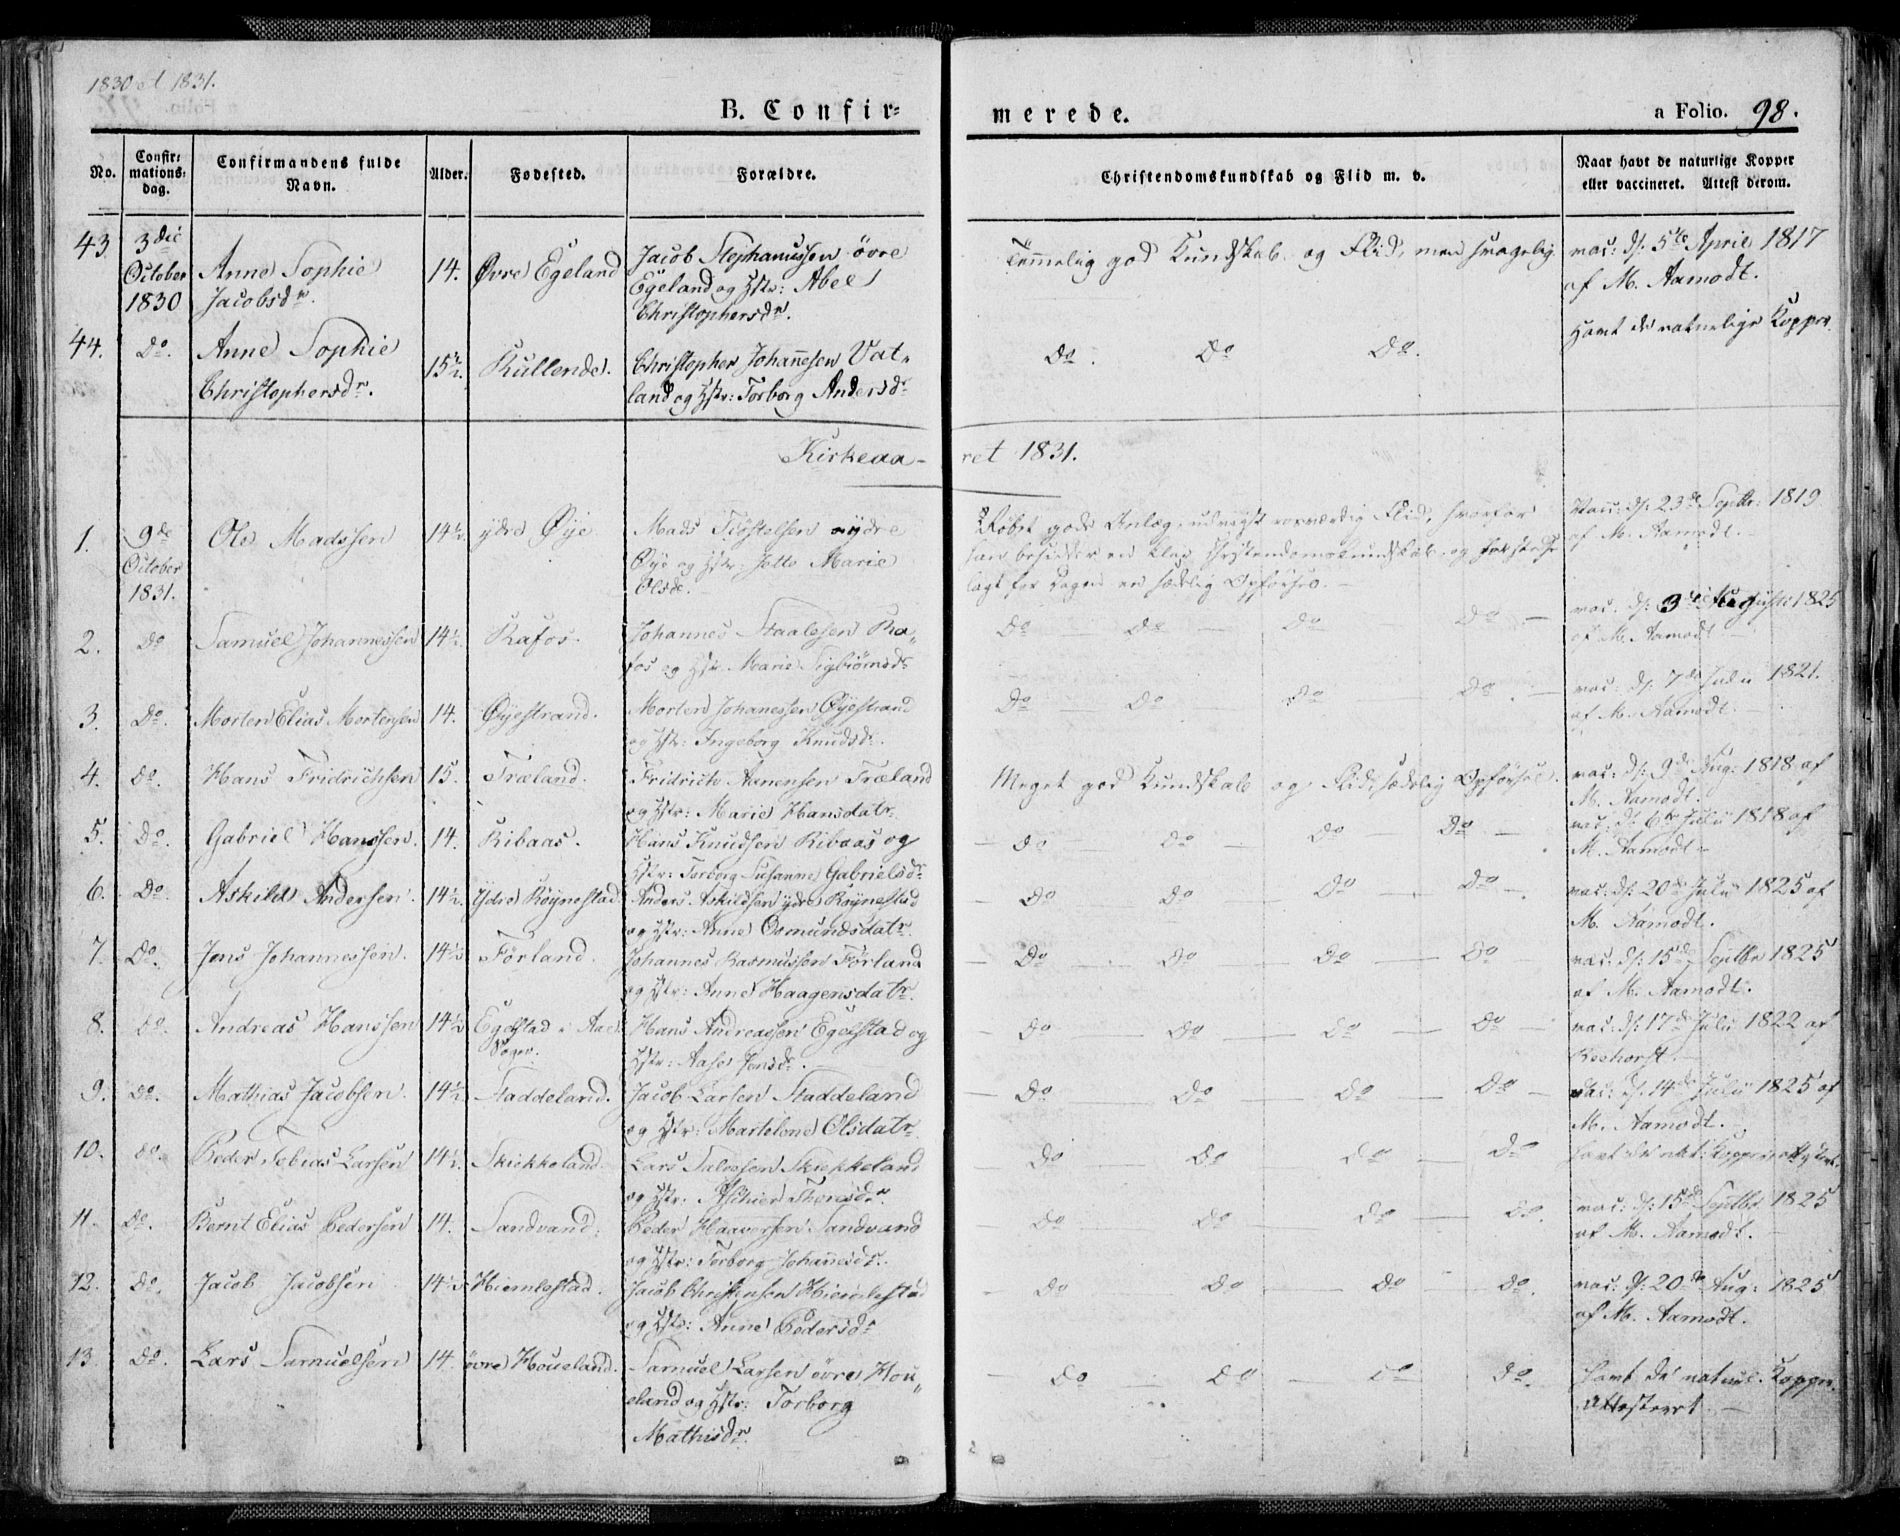 1830 et 1831.
B. Confir=
merede.
a Folio. 98.
No.
Confir=
mations=
dag.
Confirmandens fulde
Navn.
Alder.
Fødested.
Forældre.
Christendomskundskab og Flid m. v.
Naar havt de naturlige Kopper
eller vaccineret. Attest derom.
43 3die October 1830 Anne Sophie Jacobsdr. 14. Øvre Egeland
Jacob Stephanussen övre
Egeland og Hstr: Abel
Christophersdr.
Temmelig god Kundskab og Flid, men svagelig
vac: d: 5te April 1817
af M. Aamodt.
44. Do. Anne Sophie Christophersdr. 15½. Kullende.
Christopher Johannesen Vat„
land og Hstr: Torborg Andersdr
Do. Do Do.
Havt de naturlige Kopper
Kirkeaa-
ret 1831.
1. 9de October 1831. Ole Madssen 14½ ydre Øye
Mads Tiøstelsen ydre
Øye og Hstr: Marie
Olsdr.
gode Anlæg, Flid, hvorfor
han besidder en klar Christendomskundskab og
lagt for Dagen en sædelig Opførsel. -
Vacc: d: 23de Septbr: 1819
af M. Aamodt.
2. Do Samuel Johannessen 14½. Rafos.
Johannes Staalesen Ra„
fos og Hstr. Marie Sigbiörnsdr
Do Do - Do Do -
vac: d: 3die Augusti 1825
af M. Aamodt
3. Do. Morten Elias Mortensen 14. Øyestrand.
Morten Johanessen Øyestrand
og Hstr: Ingeborg Knudsdr.
Do Do Do Do. -
vac: d: 7de Julii 1821.
af M. Aamodt.
4. Do. Hans Fridrichsen 15. Træland.
Fridrich Aanensen Træland
og Hstr: Marie Hansdatr
Meget god Kundskab og Flid, sædelig Opførsel.
vac: d: 9de Aug: 1818 af
M. Aamodt.
5. Do. Gabriel Hanssen. 14. Ribaas.
Hans Knudsen Ribaas og
Hstr: Torborg Susanne Gabrielsdr
- Do Do Do Do -
vac: d: 6te Julii 1818 af
M. Aamodt
6. Do. Askild Andersen. 14½. Ydre Röynestad
Anders Askildsen ydre Röynestad
og Hstr: Anne Osmundsdatr.
- Do Do - Do - Do -
vac: d: 20de Julii 1825 af
M. Aamodt.
7. Do. Jens Johannessen. 14½ Förland.
Johannes Rasmussen Förland
og Hstr: Anne Haagensdatr.
- Do - Do - Do - Do
vac: d: 15de Septbr 1825
af M. Aamodt.
8. Do. Andreas Hanssen 14½ Egelstad i Aae Sogn.
Hans Andreassen Egelstad og
Hstr: Aase Jensdr.
Do - Do - Do - Do
vac: d: 17de Julii 1822 af
9. Do. Mathias Jacobsen. 14½ Staddeland.
Jacob Larsen Staddeland
og Hstr: Martelene Olsdatr
- Do - Do - Do - Do -
vac: d: 14de Julii 1825 af
M. Aamodt.
10. Do. Peder Tobias Larsen 14½. Skiekkeland.
Lars Salvesen Skiekkeland
og Hstr.
- Do - Do - Do - Do
havt de nat: Kopper
11. Do. Bernt Elias Pedersen 14. Sandvand.
Peder Haaversen Sandvand
og Hstr: Torborg Johannesdr.
- Do - Do - Do - Do.
vac: d: 15de Septbr 1825
af M. Aamodt.
12. Do. Jacob Jacobsen 14½ Hiemlestad.
Jacob Christensen Hiemlestad
og Hstr: Anne Pedersdr
- Do - Do - Do - Do.
vac: d: 20de Aug: 1825
af M. Aamodt.
13. Do. Lars Samuelsen 14. övre Houeland.
Samuel Larsen övre Hou„
eland og Hstr: Torborg
Mathisdr.
- Do - Do - Do - Do.
havt de naturl. Kopper
Attesteret. -